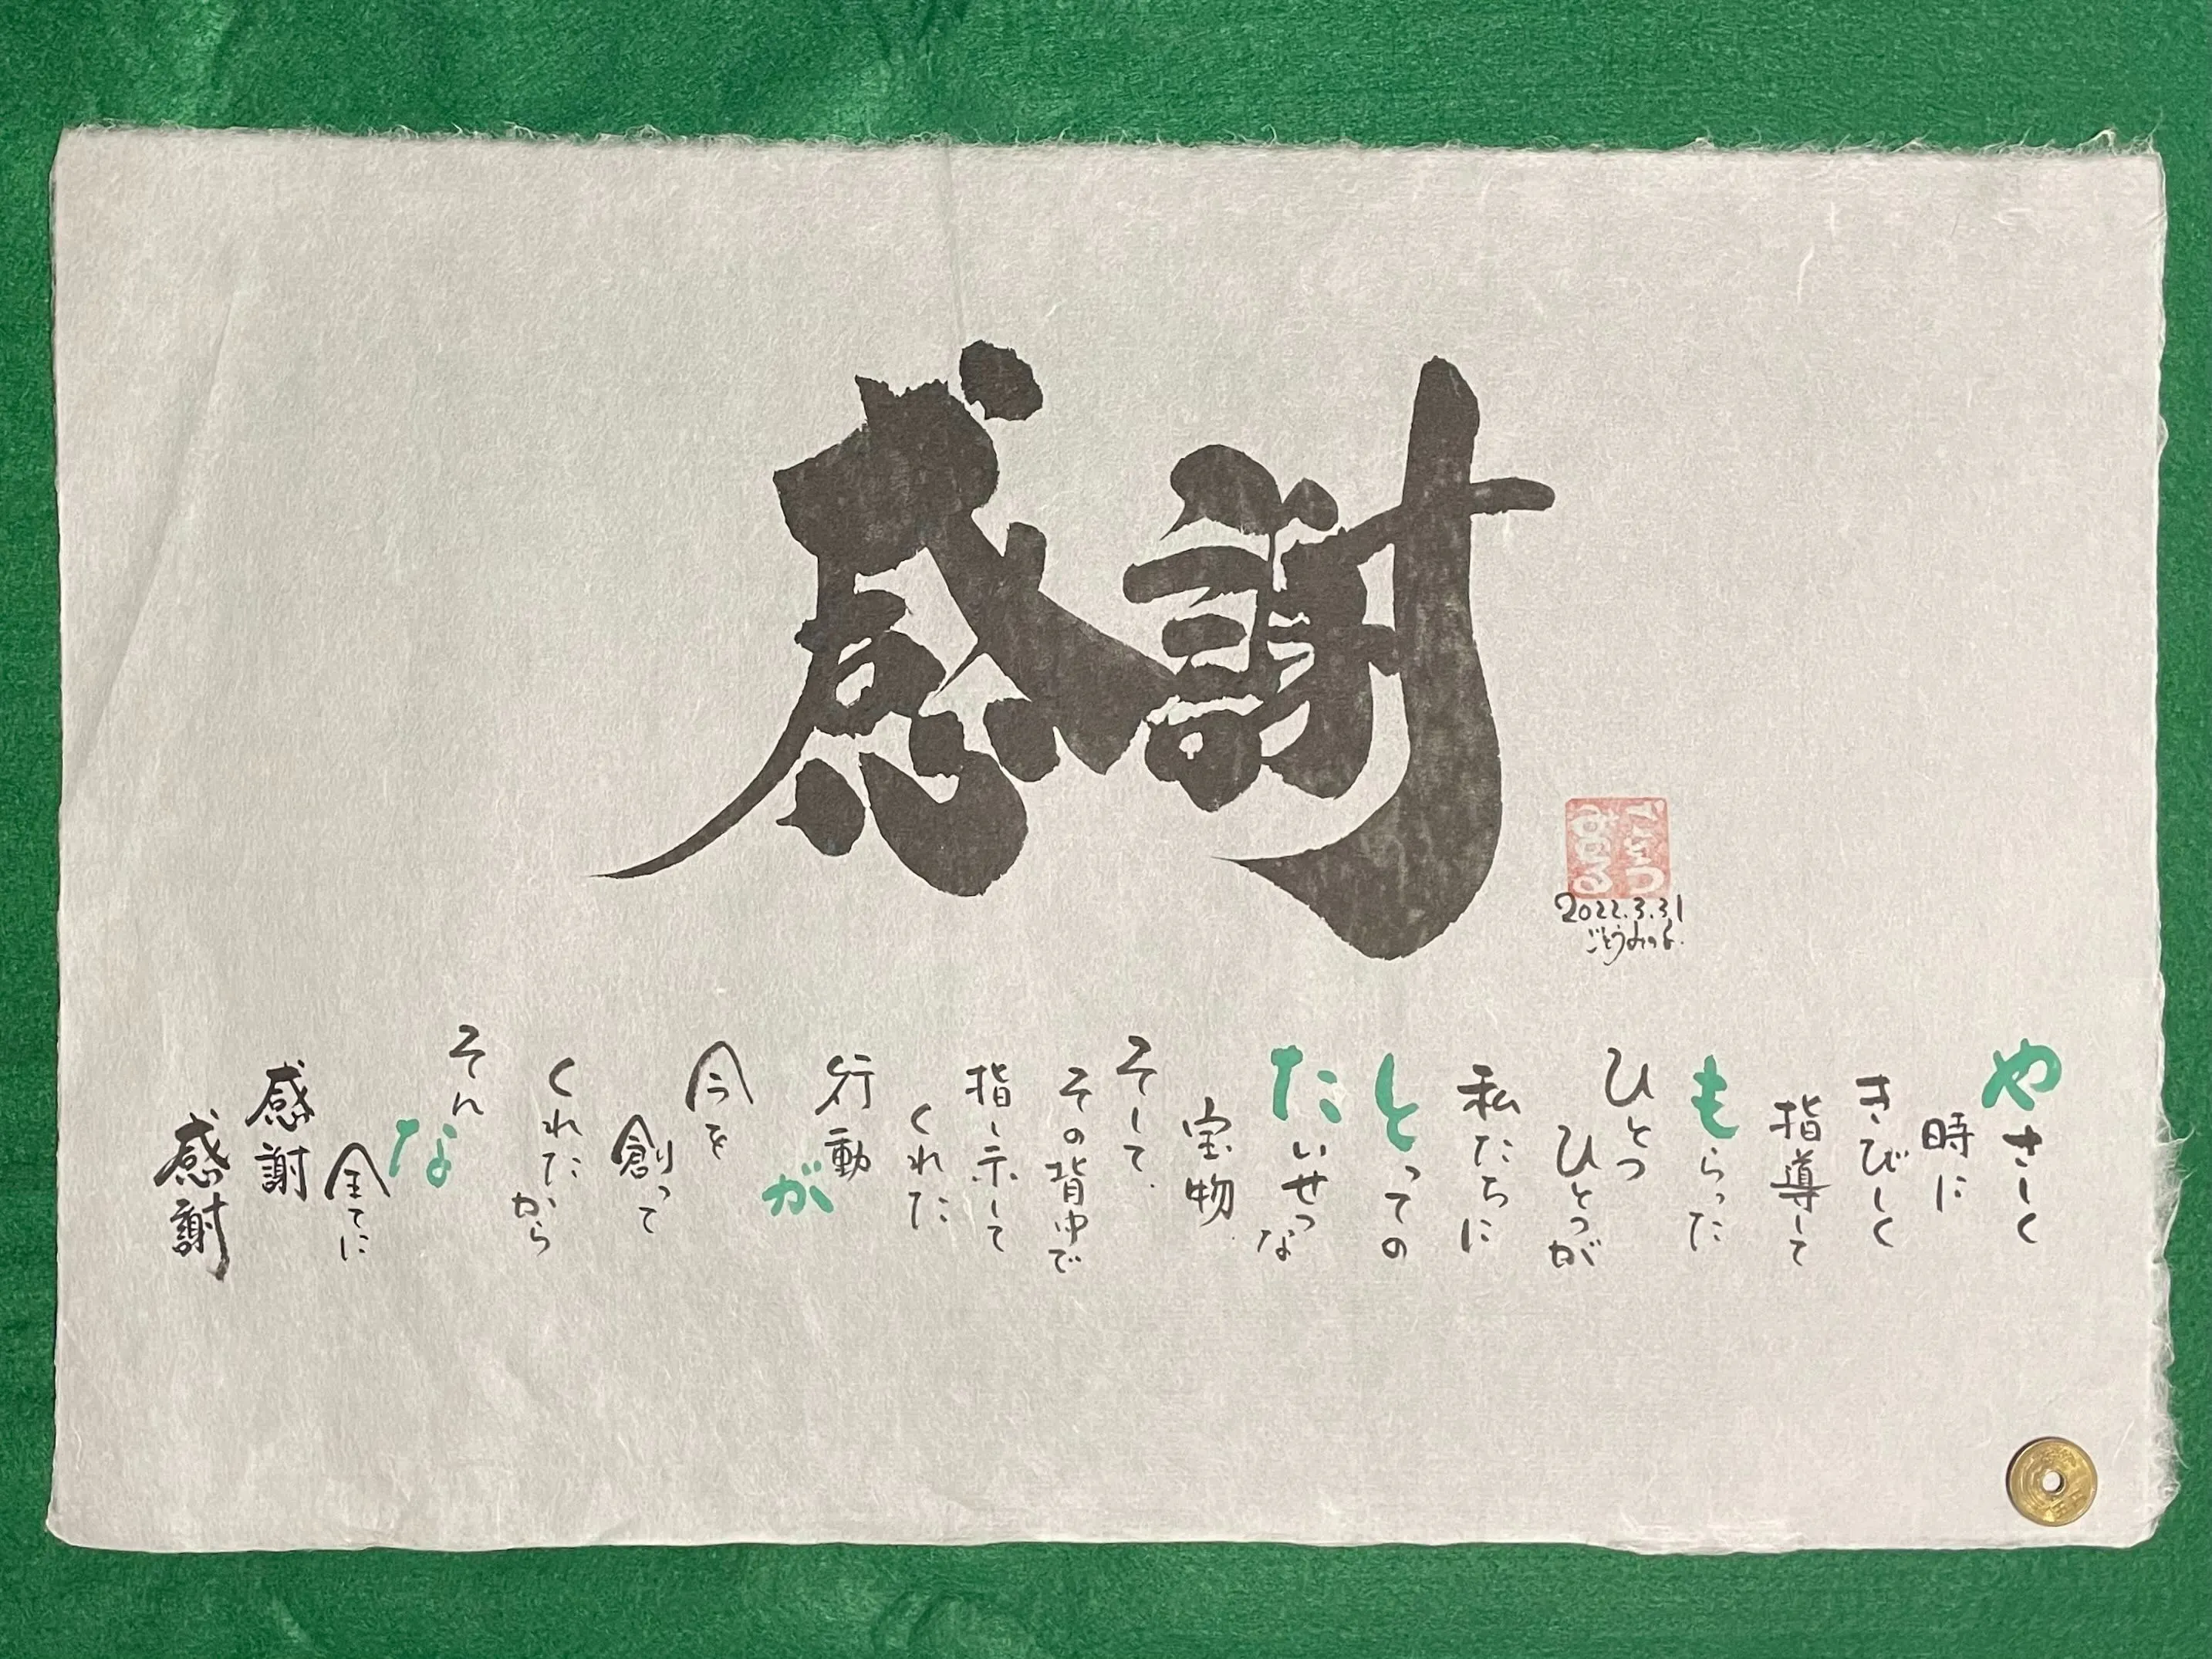 感謝
ごとう
みのる
2022.3.31
ごとうみのる.
やさしく
時に
きびしく
指導して
もらった
ひとつ
ひとつが
私たちに
とっての
たいせつな
宝物
そして
その背中で
指し示して
くれた
行動
が
今を
創って
くれたから
そんな
全てに
感謝
感謝